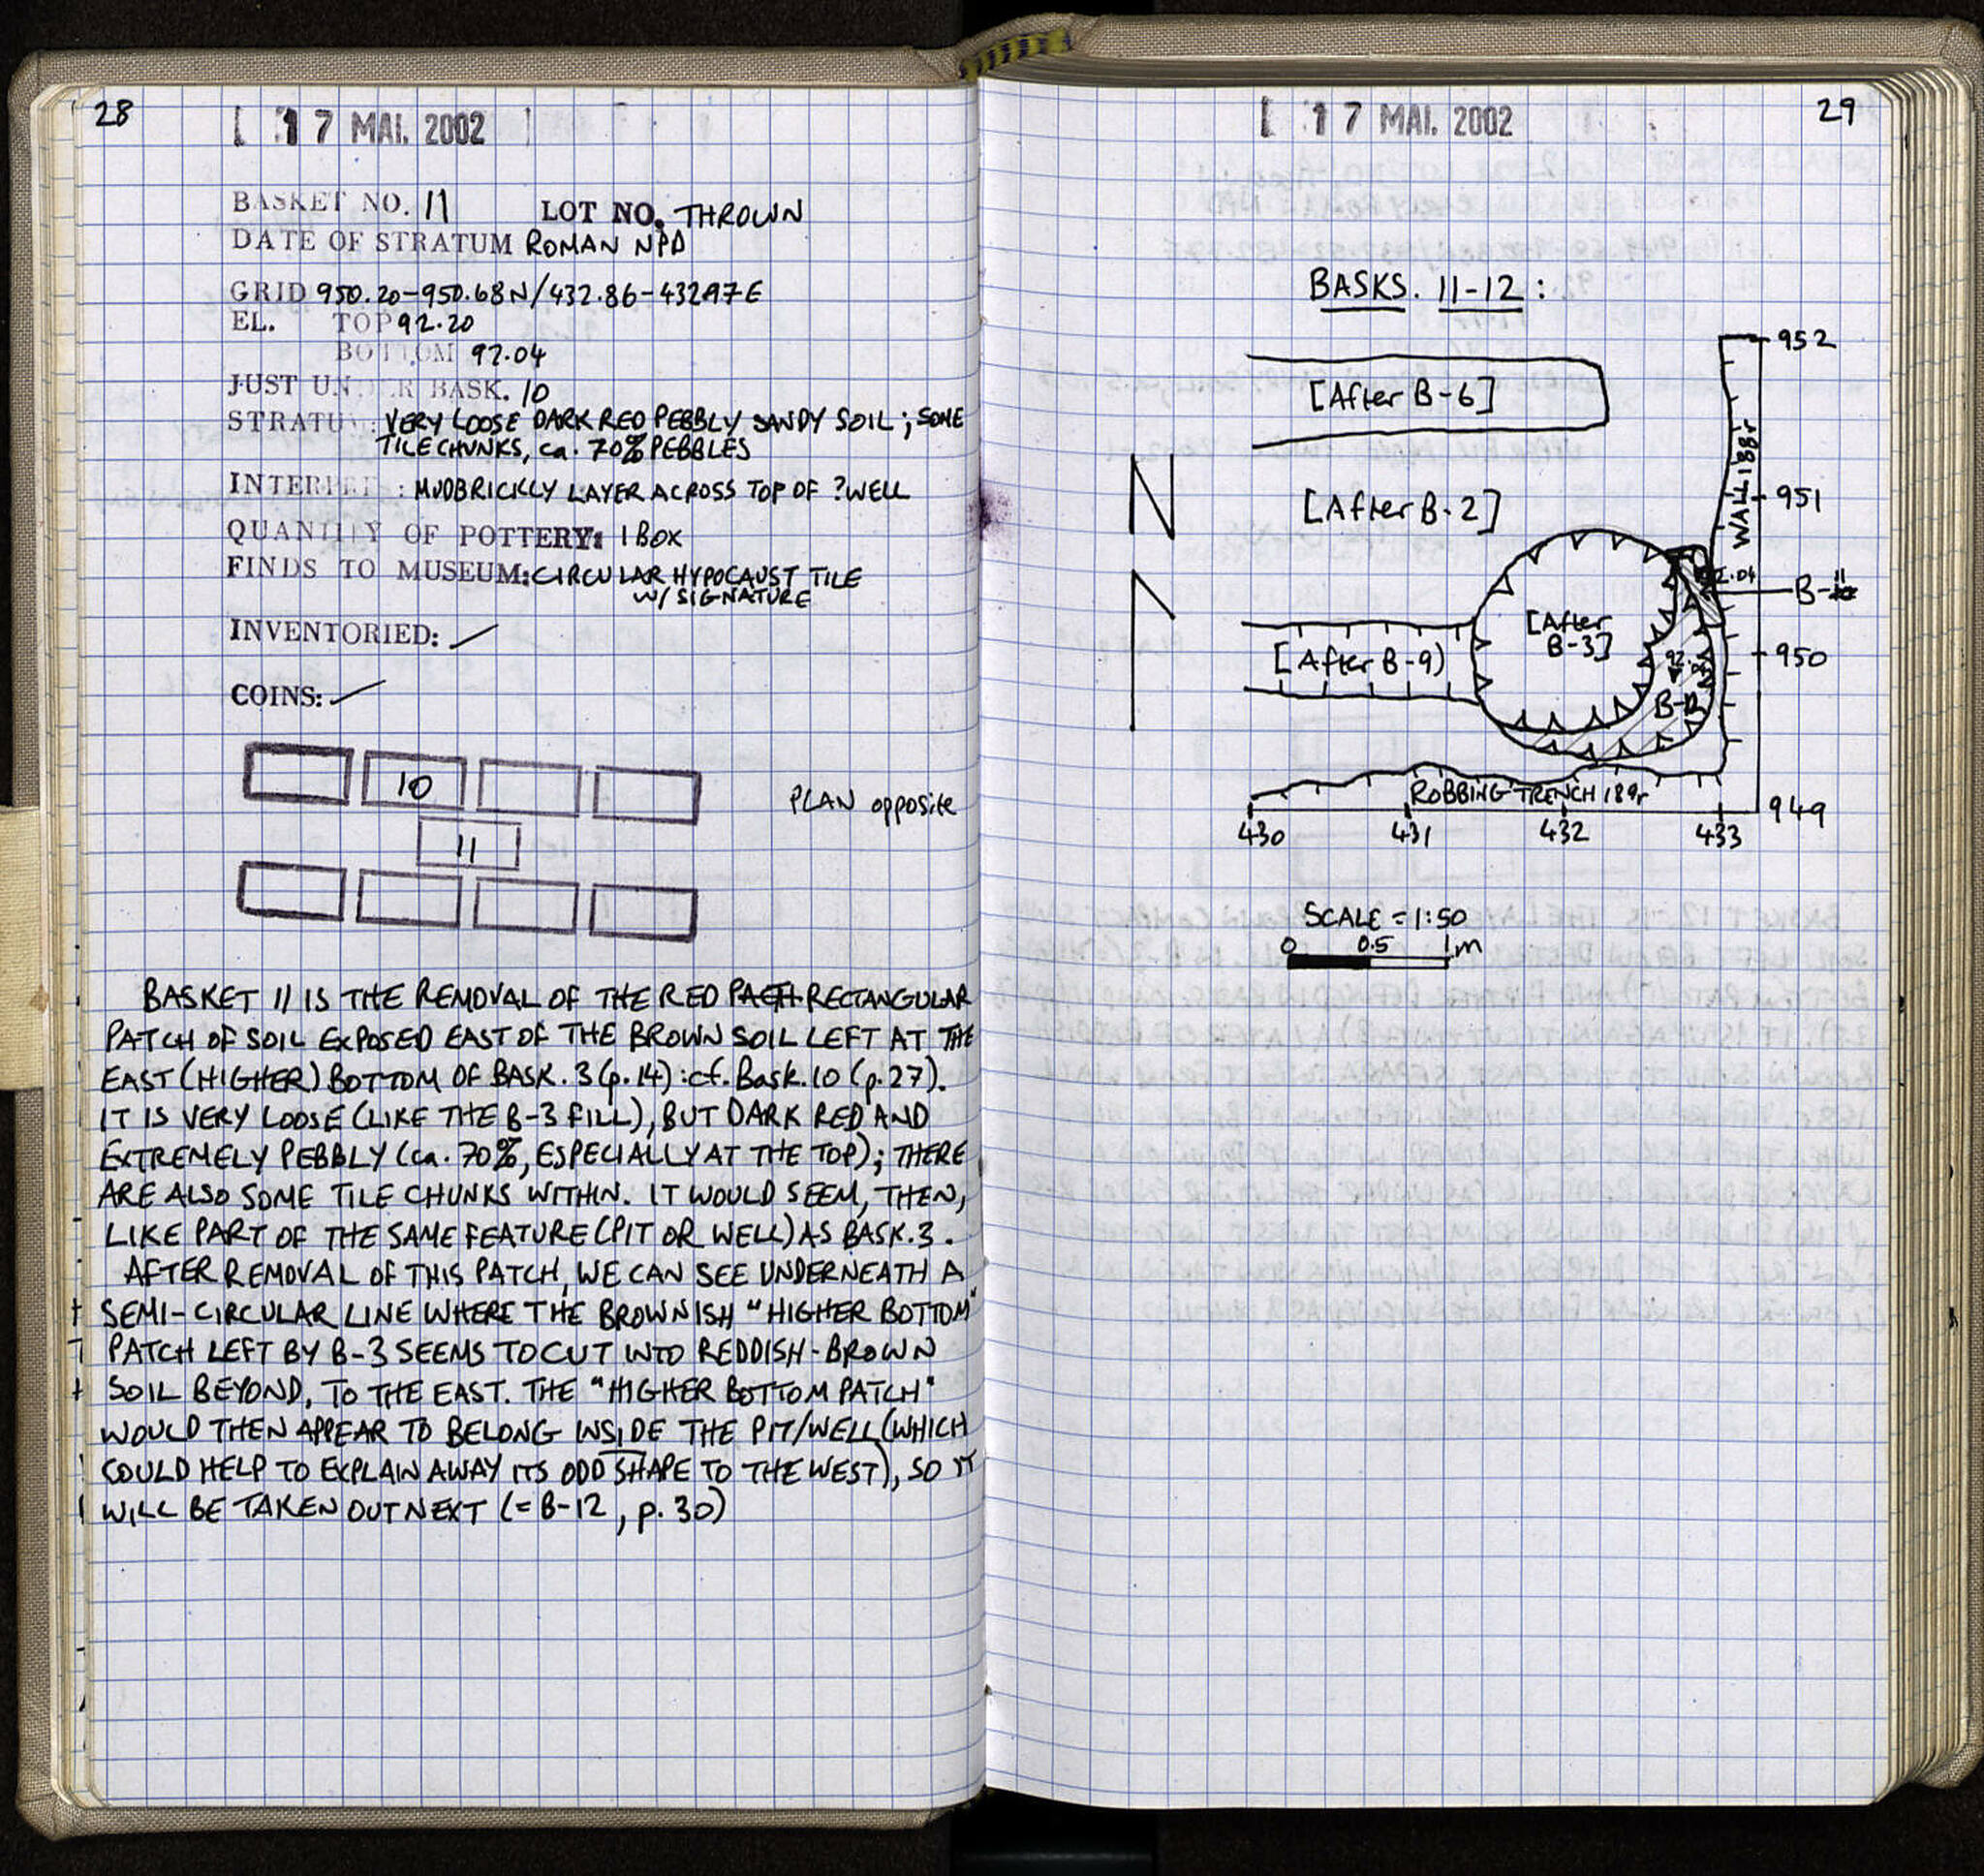 28
17 MAI. 2002
BASKET NO. 11 LOT NO. THROWN
DATE OF STRATUM ROMAN NPD
GRID 950.20-950.68N/432.86-432.97E
EL. TOP 92.20
BOTTOM 92.04
JUST UNDER BASK. 10
STRATUM: VERY LOOSE DARK RED PEBBLY SANDY SOIL; SOME
TILE CHUNKS, ca. 70% PEBBLES
INTERPRET: MUDBRICKLY LAYER ACROSS TOP OF ?WELL
QUANTITY OF POTTERY: 1 BOX
FINDS TO MUSEUM: CIRCULAR HYPOCAUST TILE
W/ SIGNATURE
INVENTORIED: /
COINS: /
10
PLAN opposite
11
BASKET 11 IS THE REMOVAL OF THE RED RECTANGULAR
PATCH OF SOIL EXPOSED EAST OF THE BROWN SOIL LEFT AT THE
EAST (HIGHER) BOTTOM OF BASK. 3 (p.14): cf. Bask. 10 (p.27).
IT IS VERY LOOSE (LIKE THE B-3 FILL), BUT DARK RED AND
EXTREMELY PEBBLY (ca. 70%, ESPECIALLY AT THE TOP); THERE
ARE ALSO SOME TILE CHUNKS WITHIN. IT WOULD SEEM, THEN,
LIKE PART OF THE SAME FEATURE (PIT OR WELL) AS BASK. 3.
AFTER REMOVAL OF THIS PATCH, WE CAN SEE UNDERNEATH A
SEMI-CIRCULAR LINE WHERE THE BROWNISH "HIGHER BOTTOM"
PATCH LEFT BY B-3 SEEMS TO CUT INTO REDDISH-BROWN
SOIL BEYOND, TO THE EAST. THE "HIGHER BOTTOM PATCH"
WOULD THEN APPEAR TO BELONG INSIDE THE PIT/WELL (WHICH
COULD HELP TO EXPLAIN AWAY ITS ODD SHAPE TO THE WEST), SO IT
WILL BE TAKEN OUT NEXT (= B-12, p. 30)
17 MAI. 2002
29
BASKS. 11-12:
952
[After B-6]
WALL 188r
N
[After B-2]
951
92.04
B-11
[After
B-3]
[After B-9)
950
B-12
ROBBING TRENCH 189r
949
430 431 432 433
SCALE = 1:50
0 0.5 1m